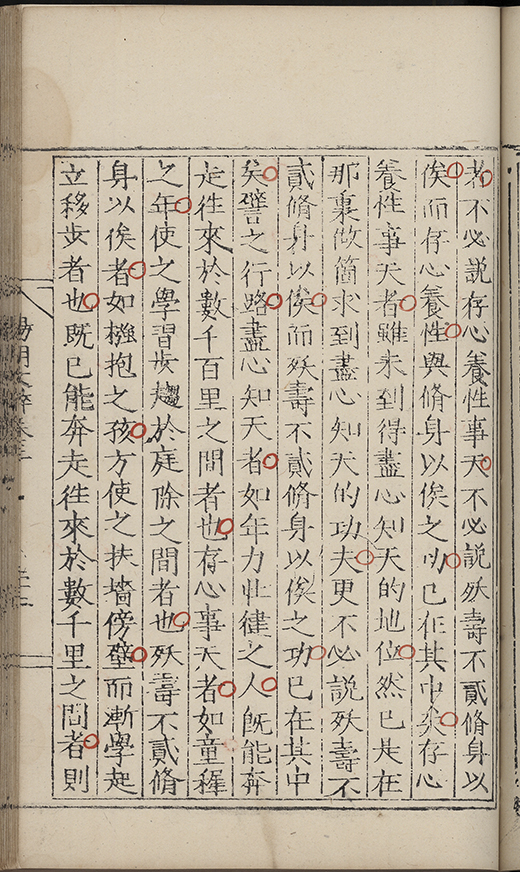 者不必說存心養性事天不必說殀壽不貳脩身以
俟而存心養性與脩身以俟之功已在其中矣存心
養性事天者雖未到得盡心知天的地位然已是在
那裏做箇求到盡心知天的功夫更不必說殀壽不
貳脩身以俟而殀壽不貳脩身以俟之功已在其中
矣譬之行路盡心知天者如年力壯健之人旣能奔
走往來於數千百里之間者也存心事天者如童穉
之年使之學習步趨於庭除之間者也殀壽不貳脩
身以俟者如襁抱之孩方使之扶墻傍壁而漸學起
立移步者也旣已能奔走往來於數千里之間者則
陽明文粹卷